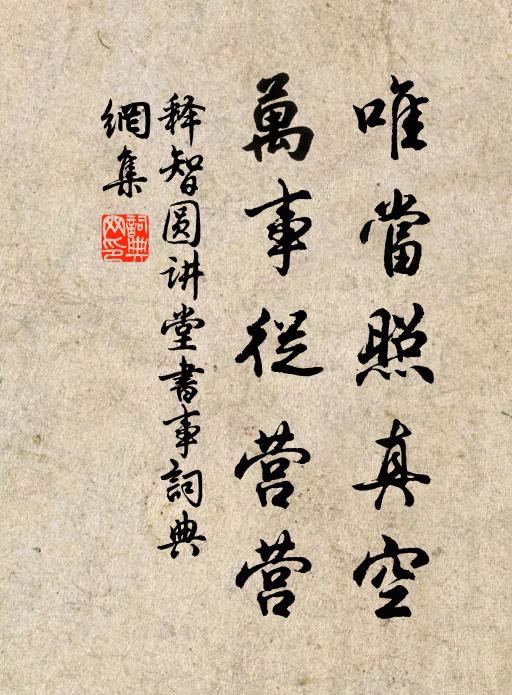 唯當照真空
萬事從营营
释智圆讲堂書事詞典
網集
詞典
网印